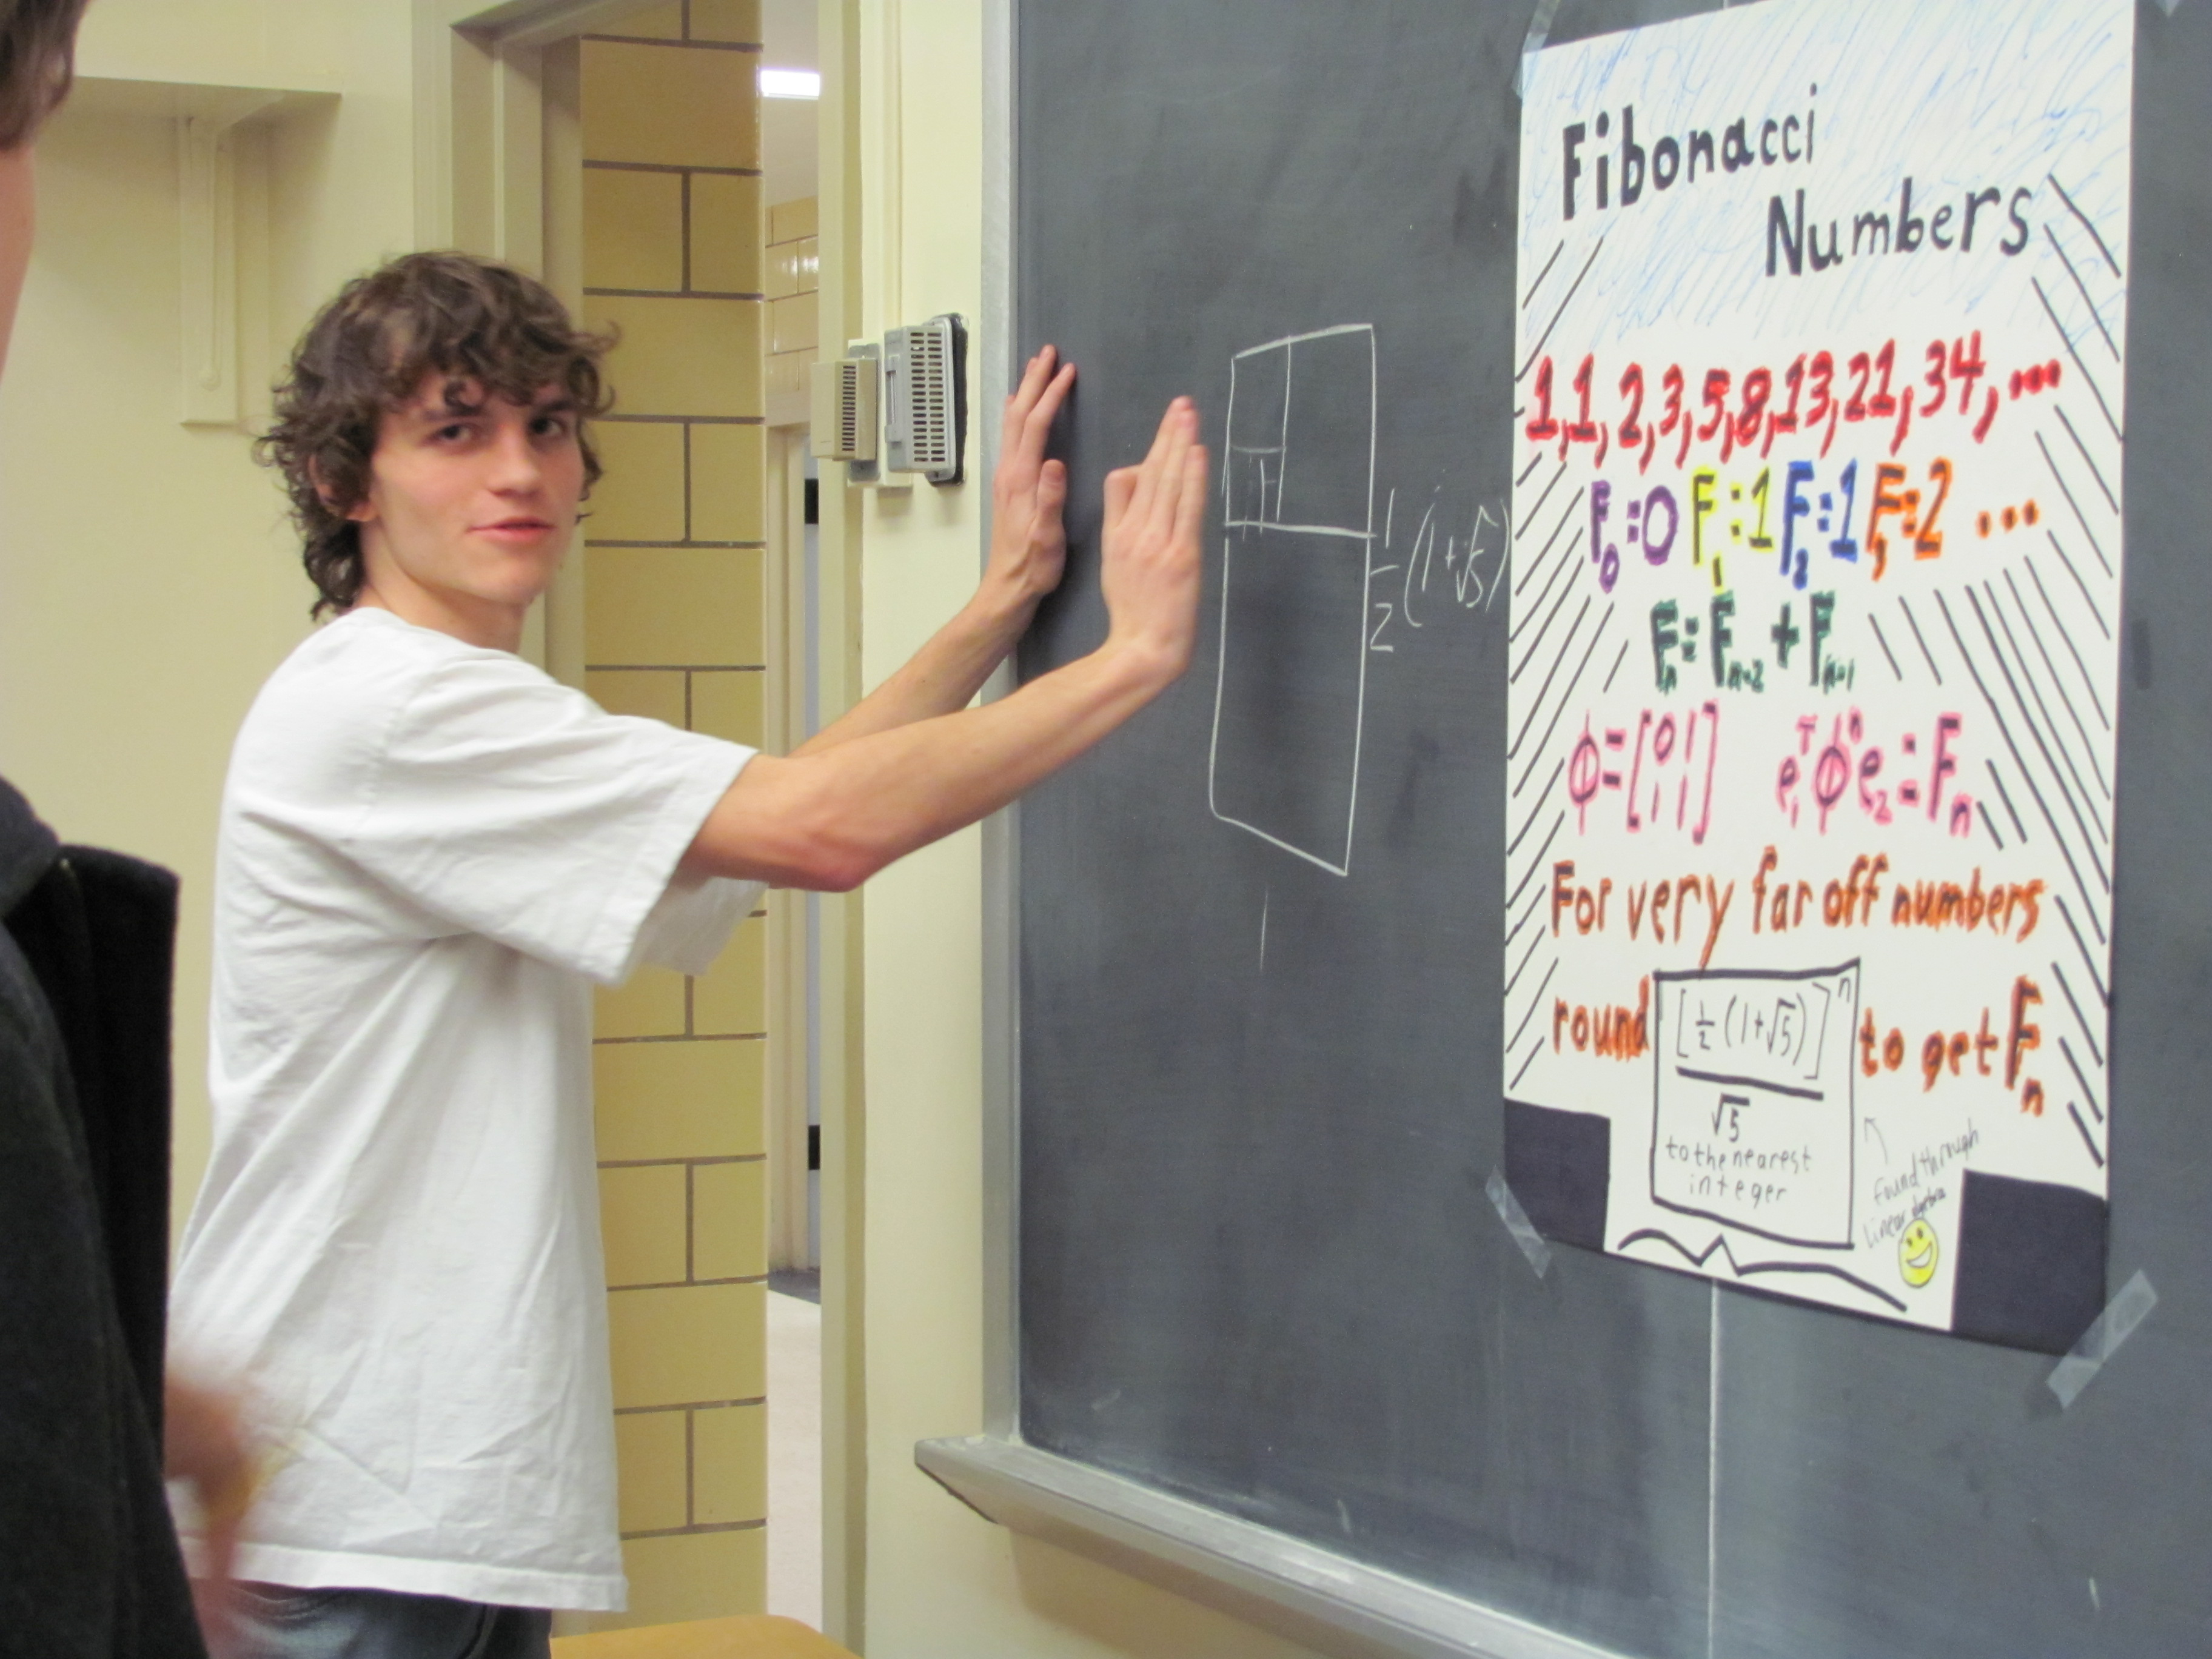 ½(1+√5)
Fibonacci
Numbers
1,1,2,3,5,8,13,21,34,...
F₀=0 F₁=1 F₂=1 F₃=2 ...
Fₙ=Fₙ₋₂+Fₙ₋₁
ϕ=[0 1
1 1] e₁ᵀϕⁿe₂=Fₙ
For very far off numbers
round [½(1+√5)]ⁿ to get Fₙ
√5
to the nearest
integer
found through
linear algebra